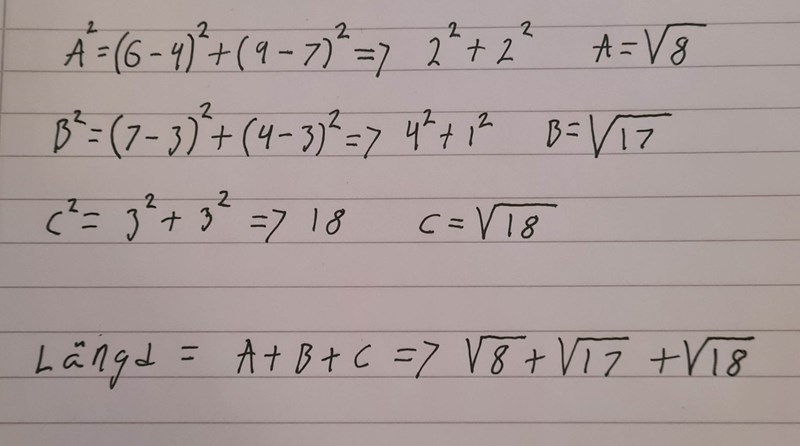 A²=(6-4)²+(9-7)²=7 2²+2² A=√8
B²=(7-3)²+(4-3)²=7 4²+1² B=√17
C²= 3²+3² =7 18 C=√18
Längd = A+B+C =7 √8+√17 +√18